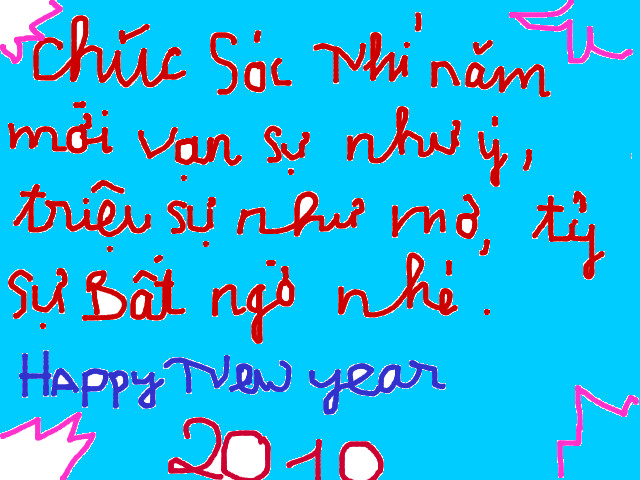 Chúc Sóc Nhí năm
mới vạn sự như ý,
triệu sự như mơ, tỷ
sự Bất ngờ nhé.
Happy New year
2010